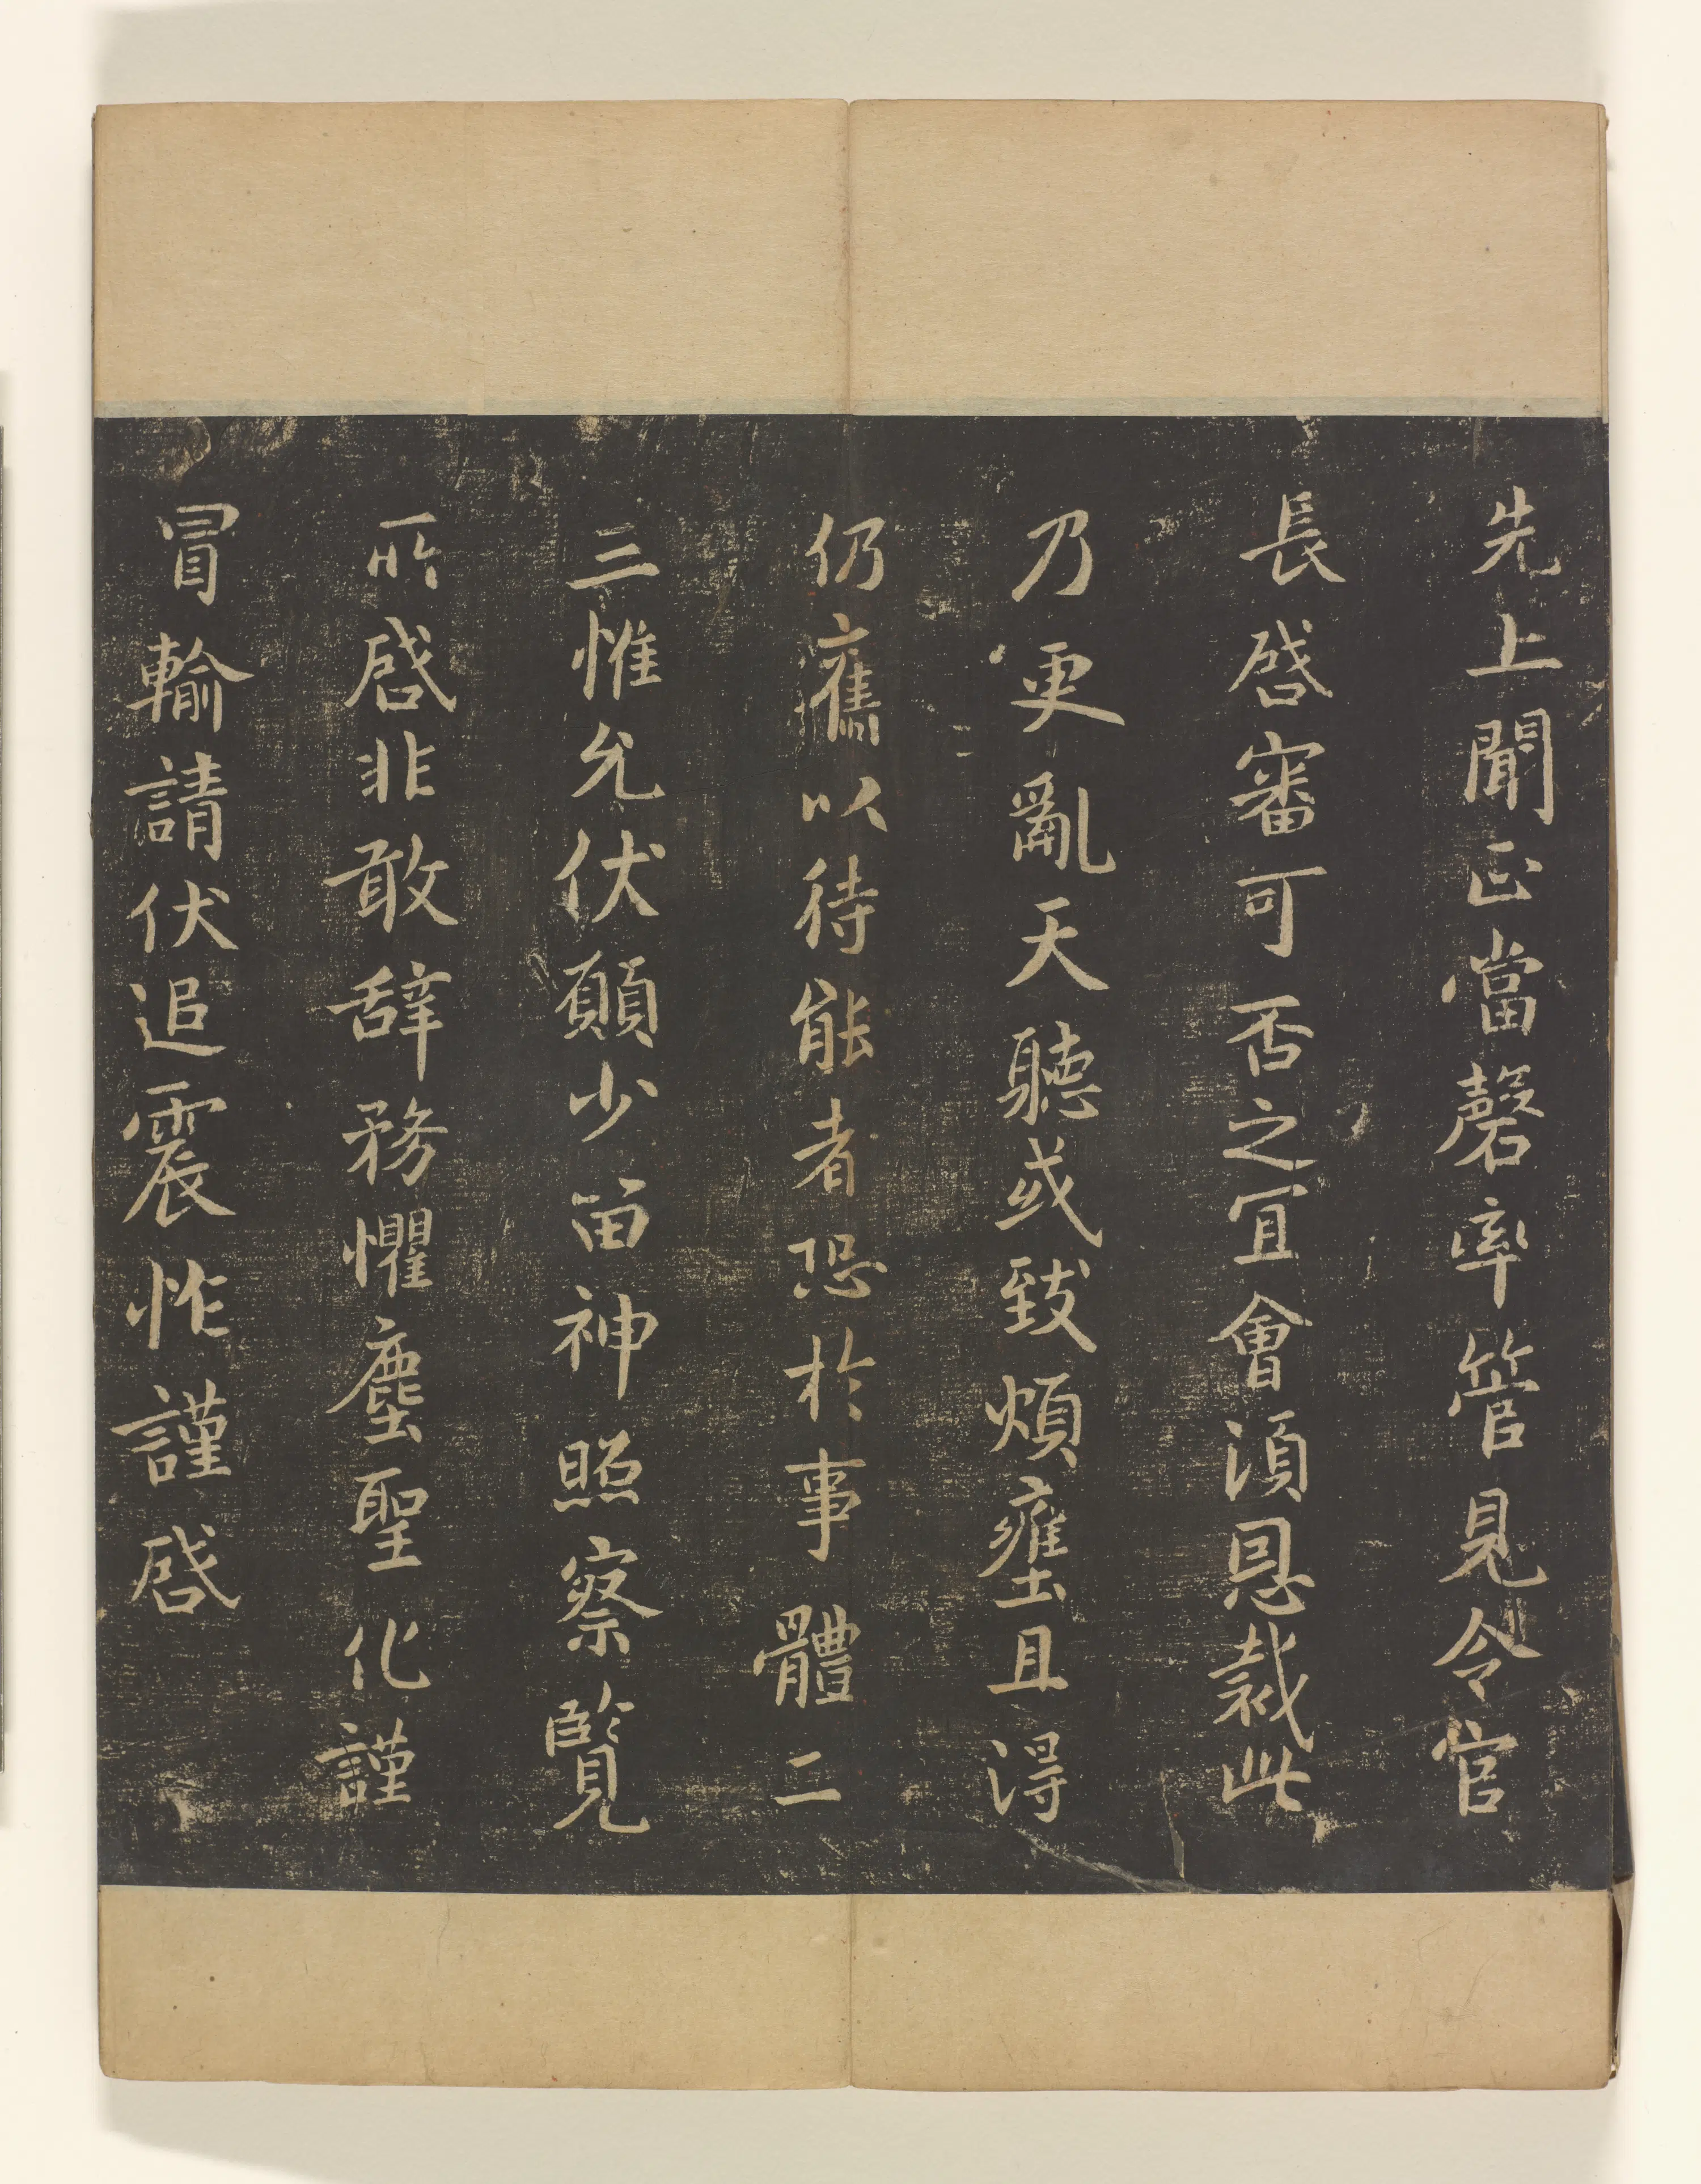 先上聞正當罄率管見令官
長啓審可否之冝會湏恩裁此
乃更亂天聽或致煩壅且得
仍舊以待能者恐於事體二
三惟允伏願少留神照察覽
所啓非敢辞務懼塵聖化謹
冒輸請伏追震怍謹啓